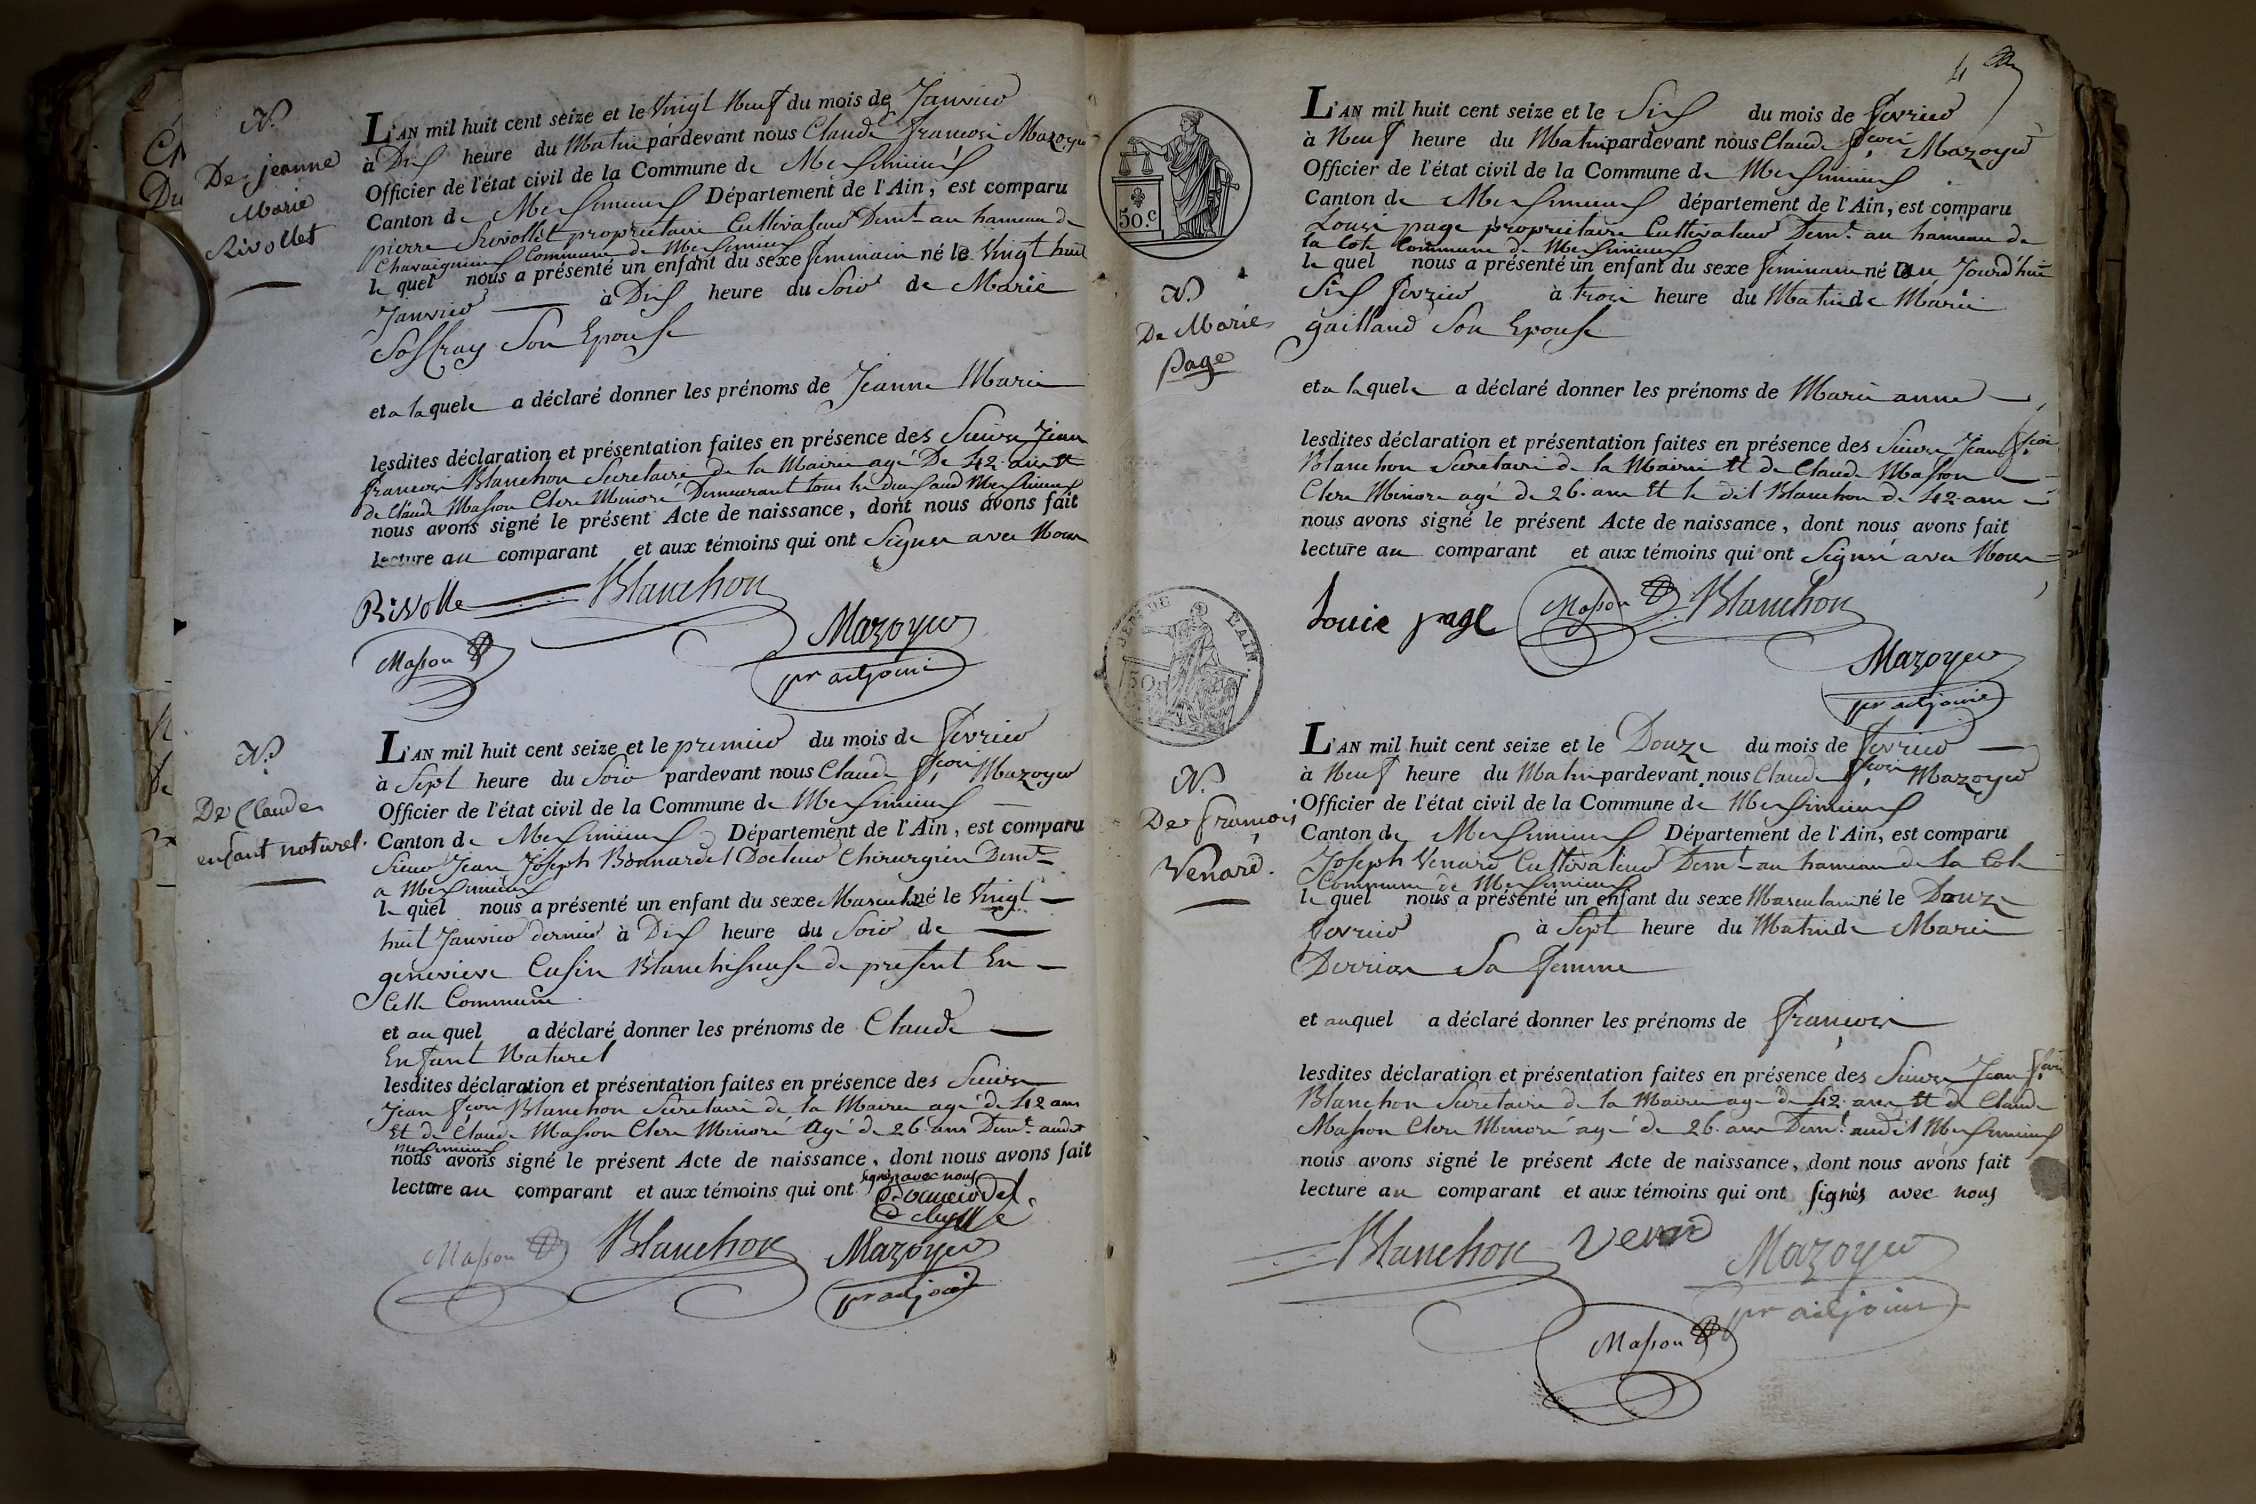 N.
De jeanne
Marie
Rivollet
L'AN mil huit cent seize et le Vingt Neuf du mois de Janvier
à Dix heure du Matin pardevant nous Claude francois Mazoyer
Officier de l'état civil de la Commune de Meximieux
Canton de Meximieux Département de l'Ain, est comparu
pierre Rivollet propriétaire Cultivateur Demt au hameau de
Chavagnieux Commune de Meximieux
le quel nous a présenté un enfant du sexe feminain né le Vingt huit
Janvier à Dix heure du Soir de Marie
Soffray Son Epouse
et a laquele a déclaré donner les prénoms de Jeanne Marie
lesdites déclaration et présentation faites en présence des Sieurs Jean
francois Blanchon Secretaire de la Mairie agé De 42 ans et
de Claude Masson Clerc Minoré Demeurant tous les deux aud Meximieux
nous avons signé le présent Acte de naissance, dont nous avons fait
lecture au comparant et aux témoins qui ont Signer avec Nous
Rivolle Blanchon
Masson Mazoyer
pr adjoint
N.
De Claude
enfant naturel.
L'AN mil huit cent seize et le premier du mois de fevrier
à Sept heure du Soir pardevant nous Claude fçois Mazoyer
Officier de l'état civil de la Commune de Meximieux
Canton de Meximieux Département de l'Ain, est comparu
Sieur Jean Joseph Bonnardel Docteur Chirurgien Demt
a Meximieux
le quel nous a présenté un enfant du sexe Masculin né le Vingt
huit Janvier dernier à Dix heure du Soir de
genevieve Cusin Blanchisseuse de present En
Cette Commune
et au quel a déclaré donner les prénoms de Claude
Enfant Naturel
lesdites déclaration et présentation faites en présence des Sieurs
Jean fçois Blanchon Secretaire de la Mairie agé de 42 ans
Et de Claude Masson Clerc Minoré Agé de 26 ans Demt. audit
Meximieux
nous avons signé le présent Acte de naissance, dont nous avons fait
lecture au comparant et aux témoins qui ont signés avec nous
Masson Blanchon Mazoyer
pr adjoint
4
50.c
N.
De Marie
page
L'AN mil huit cent seize et le Six du mois de fevrier
à Neuf heure du Matin pardevant nous Claude fçois Mazoyer
Officier de l'état civil de la Commune de Meximieux
Canton de Meximieux département de l'Ain, est comparu
Louis page propriétaire Cultivateur Demt. au hameau de
la Cote Commune de Meximieux
le quel nous a présenté un enfant du sexe feminain né au Jourd'hui
Six fevrier à trois heure du Matin de Marie
gailland Son Epouse
et a laquele a déclaré donner les prénoms de Marie anne
lesdites déclaration et présentation faites en présence des Sieurs Jean fçois
Blanchon Secretaire de la Mairie et de Claude Masson
Clerc Minoré agé de 26 ans Et le dit Blanchon de 42 ans
nous avons signé le présent Acte de naissance, dont nous avons fait
lecture au comparant et aux témoins qui ont Signé avec Nous
Louis page Masson Blanchon
Mazoyer
pr adjoint
DE L'AIN.
50.
N.
De François
Venard.
L'AN mil huit cent seize et le Douze du mois de fevrier
à Neuf heure du Matin pardevant nous Claude fçois Mazoyer
Officier de l'état civil de la Commune de Meximieux
Canton de Meximieux Département de l'Ain, est comparu
Joseph Venard Cultivateur Demt au hameau de la Cote
Commune de Meximieux
le quel nous a présenté un enfant du sexe Masculain né le Douze
fevrier à Sept heure du Matin de Marie
Derrion Sa femme
et au quel a déclaré donner les prénoms de françois
lesdites déclaration et présentation faites en présence des Sieurs Jean fçois
Blanchon Secretaire de la Mairie agé de 42 ans et de Claude
Masson Clerc Minoré agé de 26 ans Demt. audit Meximieux
nous avons signé le présent Acte de naissance, dont nous avons fait
lecture au comparant et aux témoins qui ont signés avec nous
Blanchon Venard Mazoyer
pr adjoint
Masson